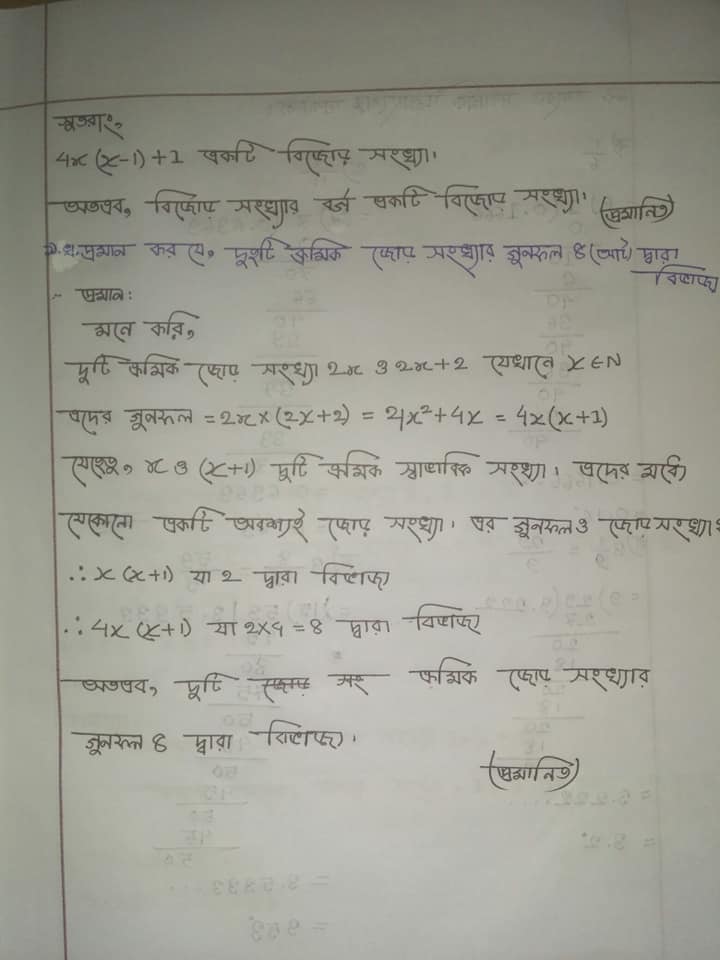 সুতরাং,
4x(x-1)+1 একটি বিজোড় সংখ্যা।
অতএব, বিজোড় সংখ্যার বর্গ একটি বিজোড় সংখ্যা।
(প্রমানিত)
প্রমান কর যে, দুইটি ক্রমিক জোড় সংখ্যার গুনফল ৪ (আট) দ্বারা
বিভাজ্য
প্রমান:
মনে করি,
দুটি ক্রমিক জোড় সংখ্যা 2x ও 2x+2 যেখানে x∈N
এদের গুনফল = 2x×(2x+2) = 4x²+4x = 4x(x+1)
যেহেতু, x ও (x+1) দুটি ক্রমিক স্বাভাবিক সংখ্যা। এদের মধ্যে
যেকোনো একটি অবশ্যই জোড় সংখ্যা। এর গুনফলও জোড় সংখ্যা।
∴ x(x+1) যা 2 দ্বারা বিভাজ্য
∴ 4x(x+1) যা 2×4=8 দ্বারা বিভাজ্য
অতএব, দুটি ক্রমিক জোড় সংখ্যার
গুনফল ৪ দ্বারা বিভাজ্য।
(প্রমানিত)